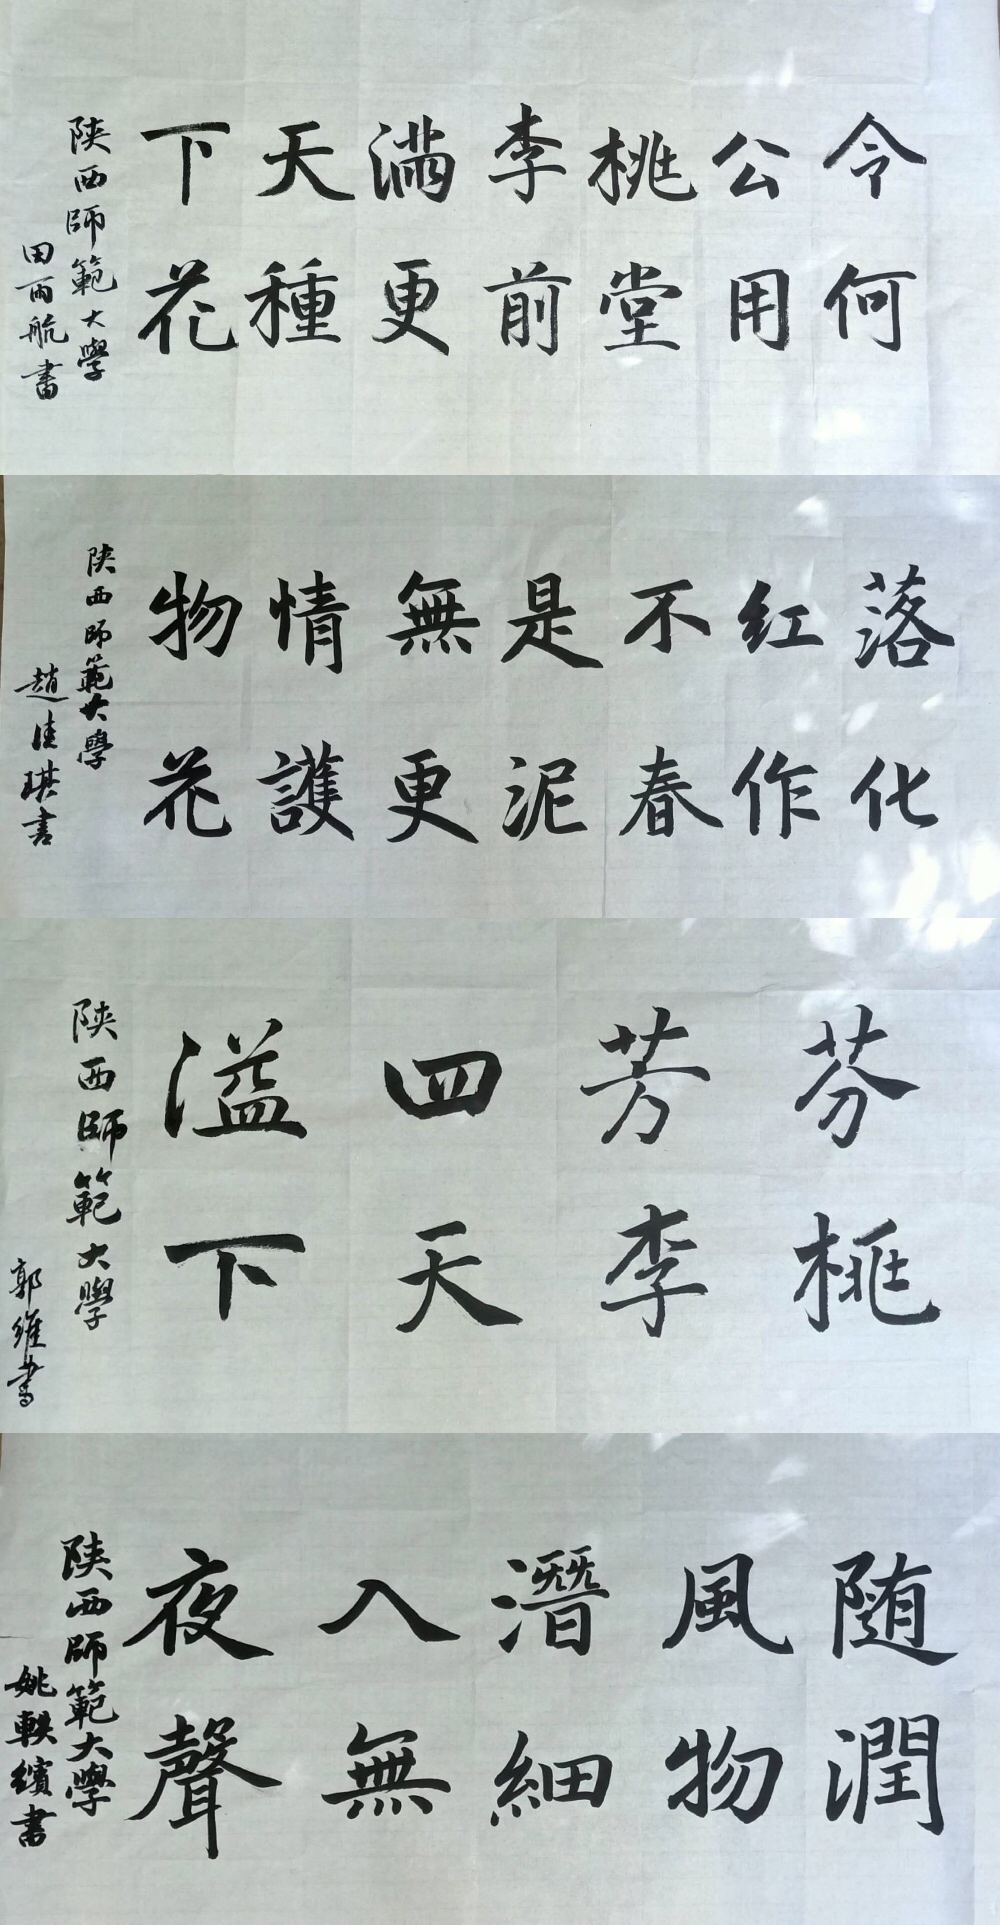 令公桃李滿天下
何用堂前更種花
陝西師範大學
田雨航書
落紅不是無情物
化作春泥更護花
陝西師範大學
趙佳琪書
芬芳四溢
桃李天下
陝西師範大學
郭維書
随風潛入夜
潤物細無聲
陝西師範大學
姚軼繽書